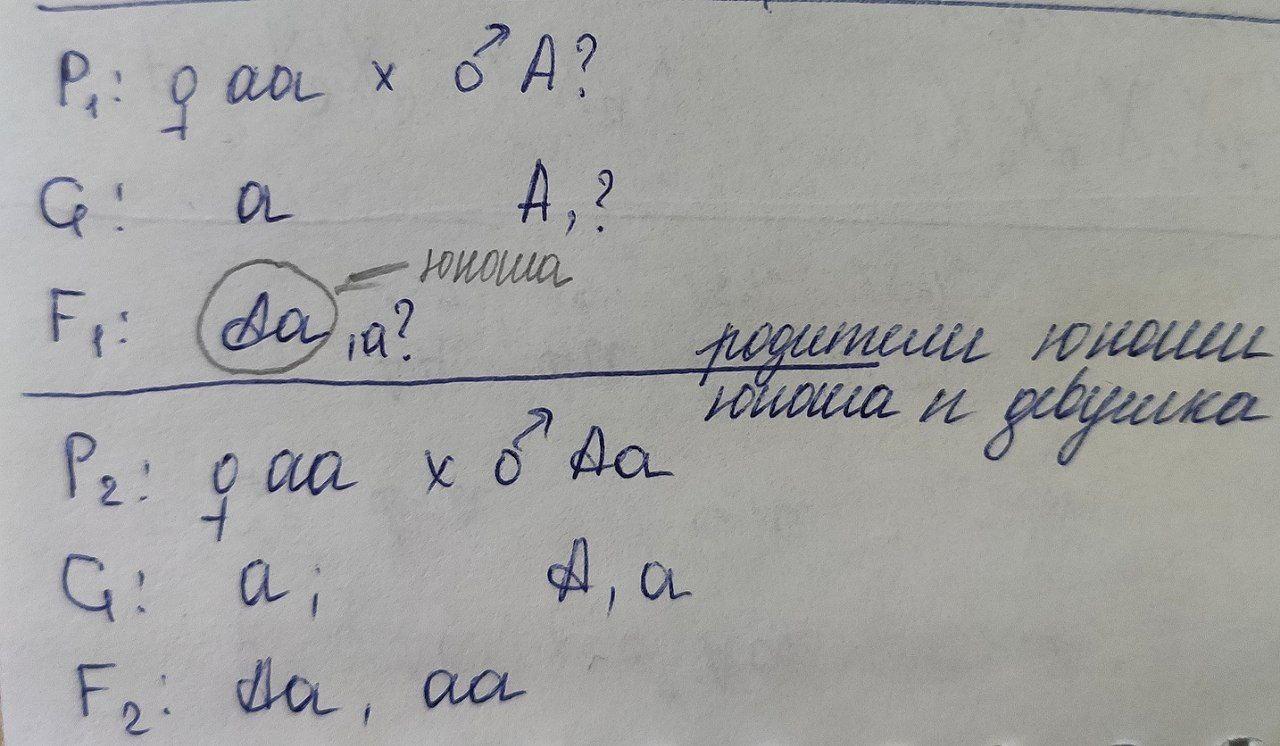 P₁: ♀ aa x ♂ A?
G: a A, ?
F₁: Aa, a? — юноша
родители юноши
юноша и девушка
P₂: ♀ aa x ♂ Aa
G: a; A, a
F₂: Aa, aa